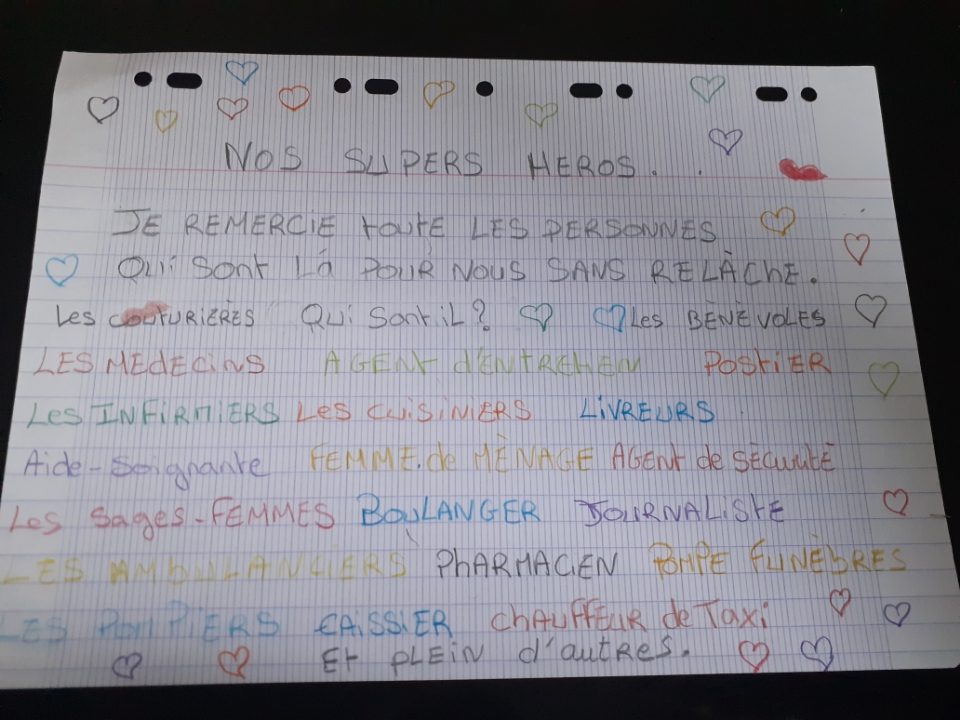 NOS SUPERS HEROS. .
JE REMERCIE toute LES PERSONNES
QUi SONt LÀ POUR NOUS SANS RELÂCHE.
Les COUTURIÈRES QUi Sont iL? Les BÉNÉVOLES
LES MEdecins AGENT d'ENTREtiEN POStiER
Les INFiRMiERS Les CUiSiNiERS LiVREURS
Aide-Soignante FEMME.de MÉNAGE AGENt de SÉCURitÉ
Les Sages-FEMMES BOULANGER JOURNALiStE
LES AMbULANCiERS PhARMACiEN POMPE FUNÈbRES
LES POMPiERS CAiSSiER ChAUFFEUR de Taxi
Et PLEiN d'autres.